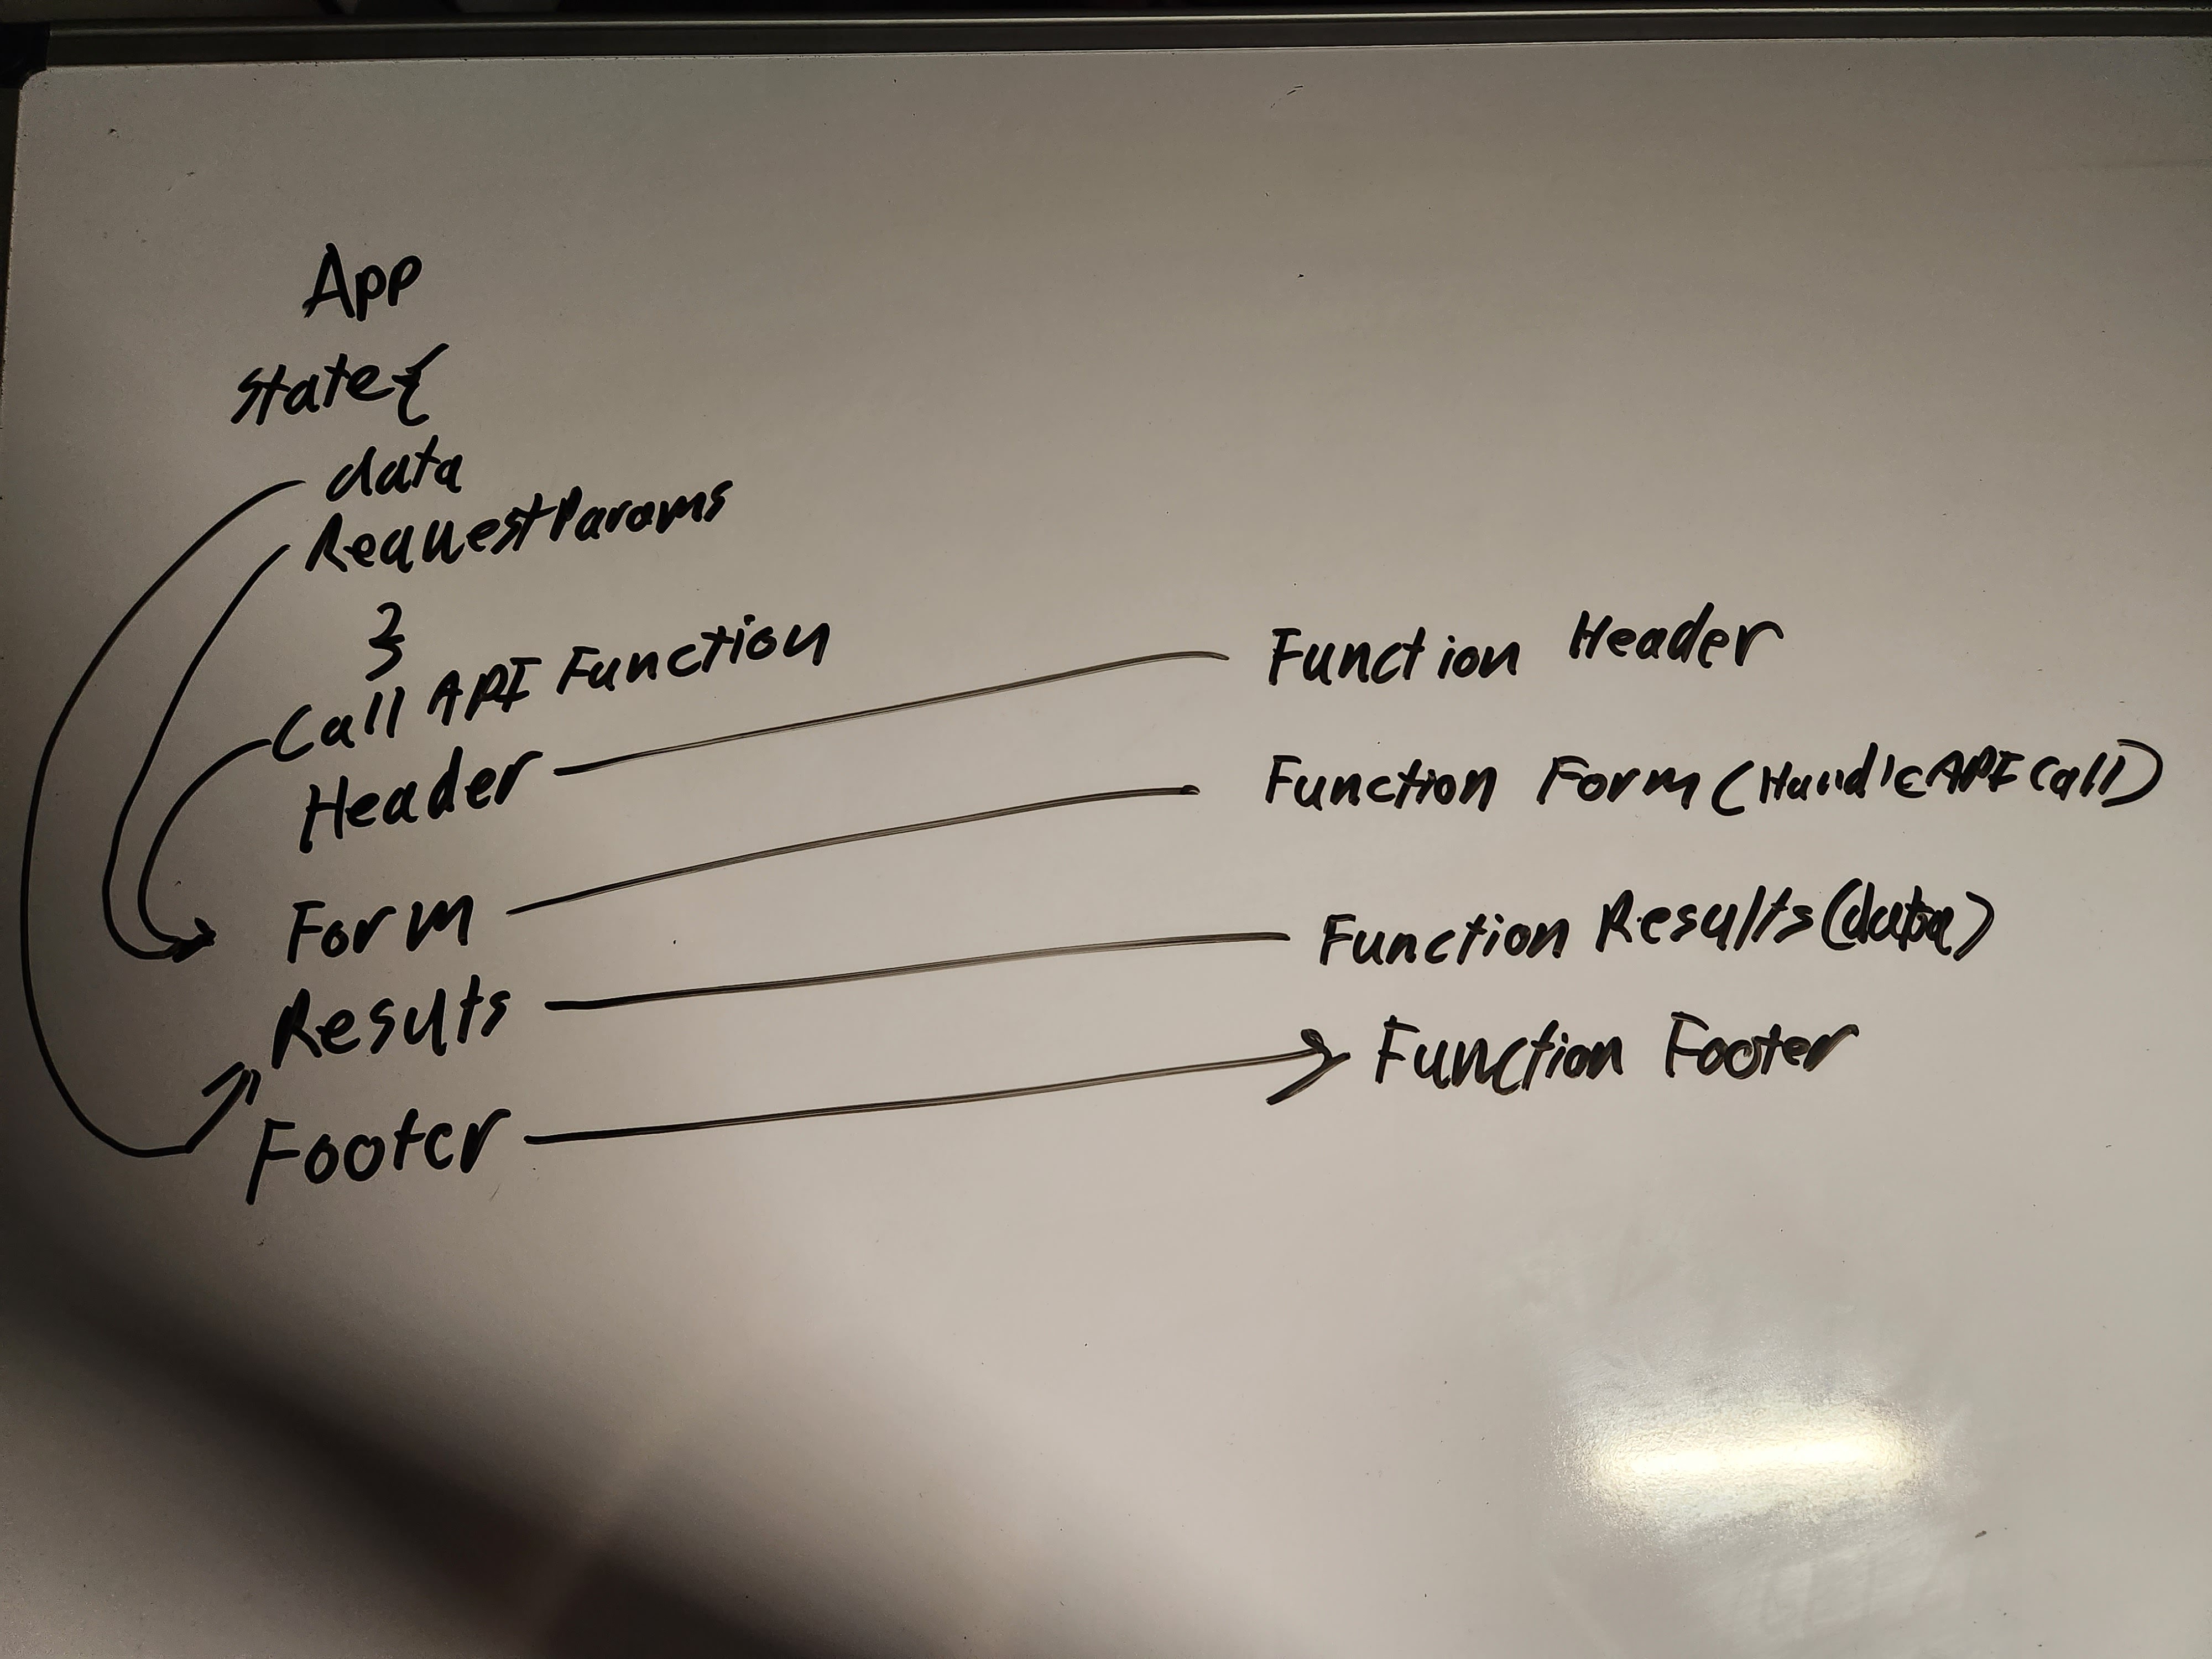 App
state{
data
RequestParams
}
Call API Function
Header
Form
Results
Footer
Function Header
Function Form (HandleAPICall)
Function Results(data)
Function Footer